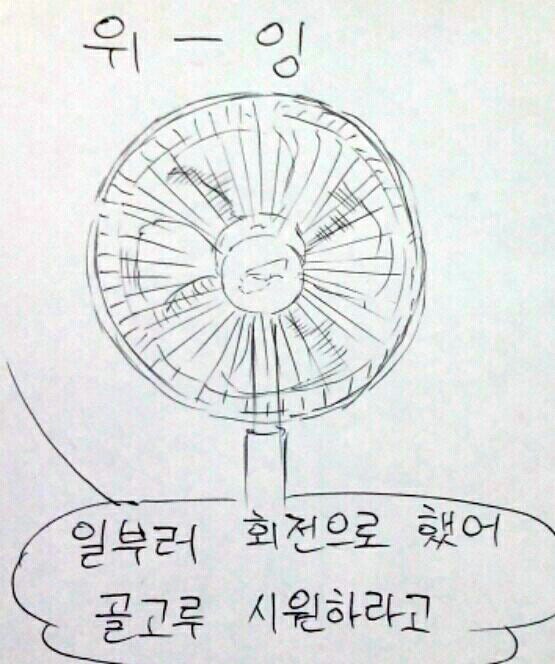 위 - 잉
일부러 회전으로 했어
골고루 시원하라고